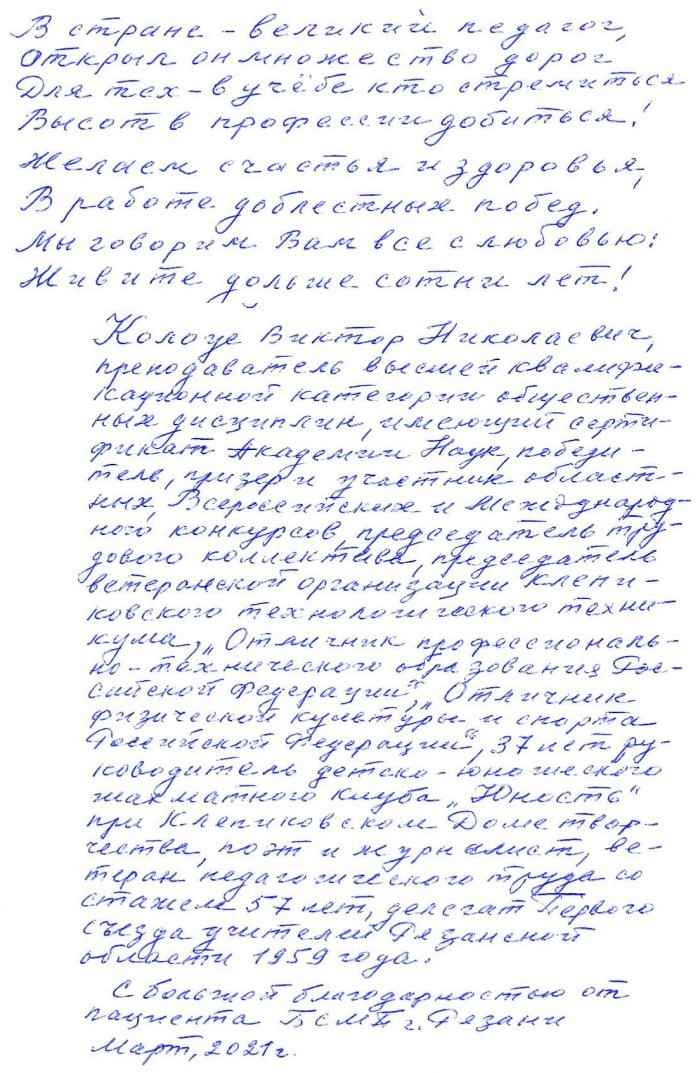 В стране - великий педагог,
Открыл он множество дорог
Для тех - в учёбе кто стремиться
Высот в профессии добиться!
Желаем счастья и здоровья,
В работе доблестных побед.
Мы говорим Вам все с любовью:
Живите дольше сотни лет!
Колоце Виктор Николаевич,
преподаватель высшей квалифи-
кационной категории обществен-
ных дисциплин, имеющий серти-
фикат Академии Наук, победи-
тель, призер и участник област-
ных, Всероссийских и Международ-
ного конкурсов, председатель тру-
дового коллектива, председатель
ветеранской организации Клепи-
ковского технологического техни-
кума, „Отличник профессиональ-
но-технического образования Рос-
сийской Федерации", „Отличник
физической культуры и спорта
Российской Федерации", 37 лет ру-
ководитель детско-юношеского
шахматного клуба „Юность"
при Клепиковском Доме твор-
чества, поэт и журналист, ве-
теран педагогического труда со
стажем 57 лет, делегат Первого
съезда учителей Рязанской
области 1959 года.
С большой благодарностью от
пациента БСМП г. Рязани
Март, 2021 г.